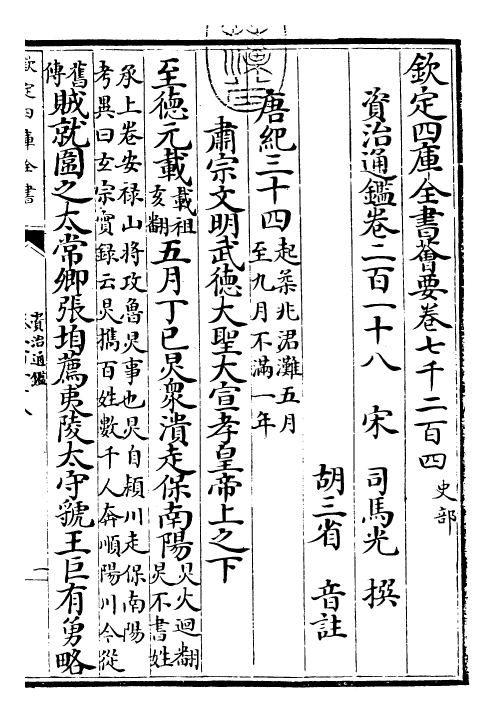 欽定四庫全書薈要卷七千二百四 史部
資治通鑑卷二百一十八 宋 司馬光 撰
胡三省 音註
唐紀三十四 起柔兆涒灘五月至九月不滿一年
肅宗文明武德大聖大宣孝皇帝上之下
至德元載 載祖亥翻 五月丁巳炅衆潰走保南陽 炅火迥翻炅不書姓
承上卷安禄山將攻魯炅事也炅自潁川走保南陽
考異曰玄宗實録云炅攜百姓數千人奔順陽川今從
舊傳 賊就圍之太常卿張垍薦夷陵太守虢王巨有勇略
欽定四庫全書
資治通鑑